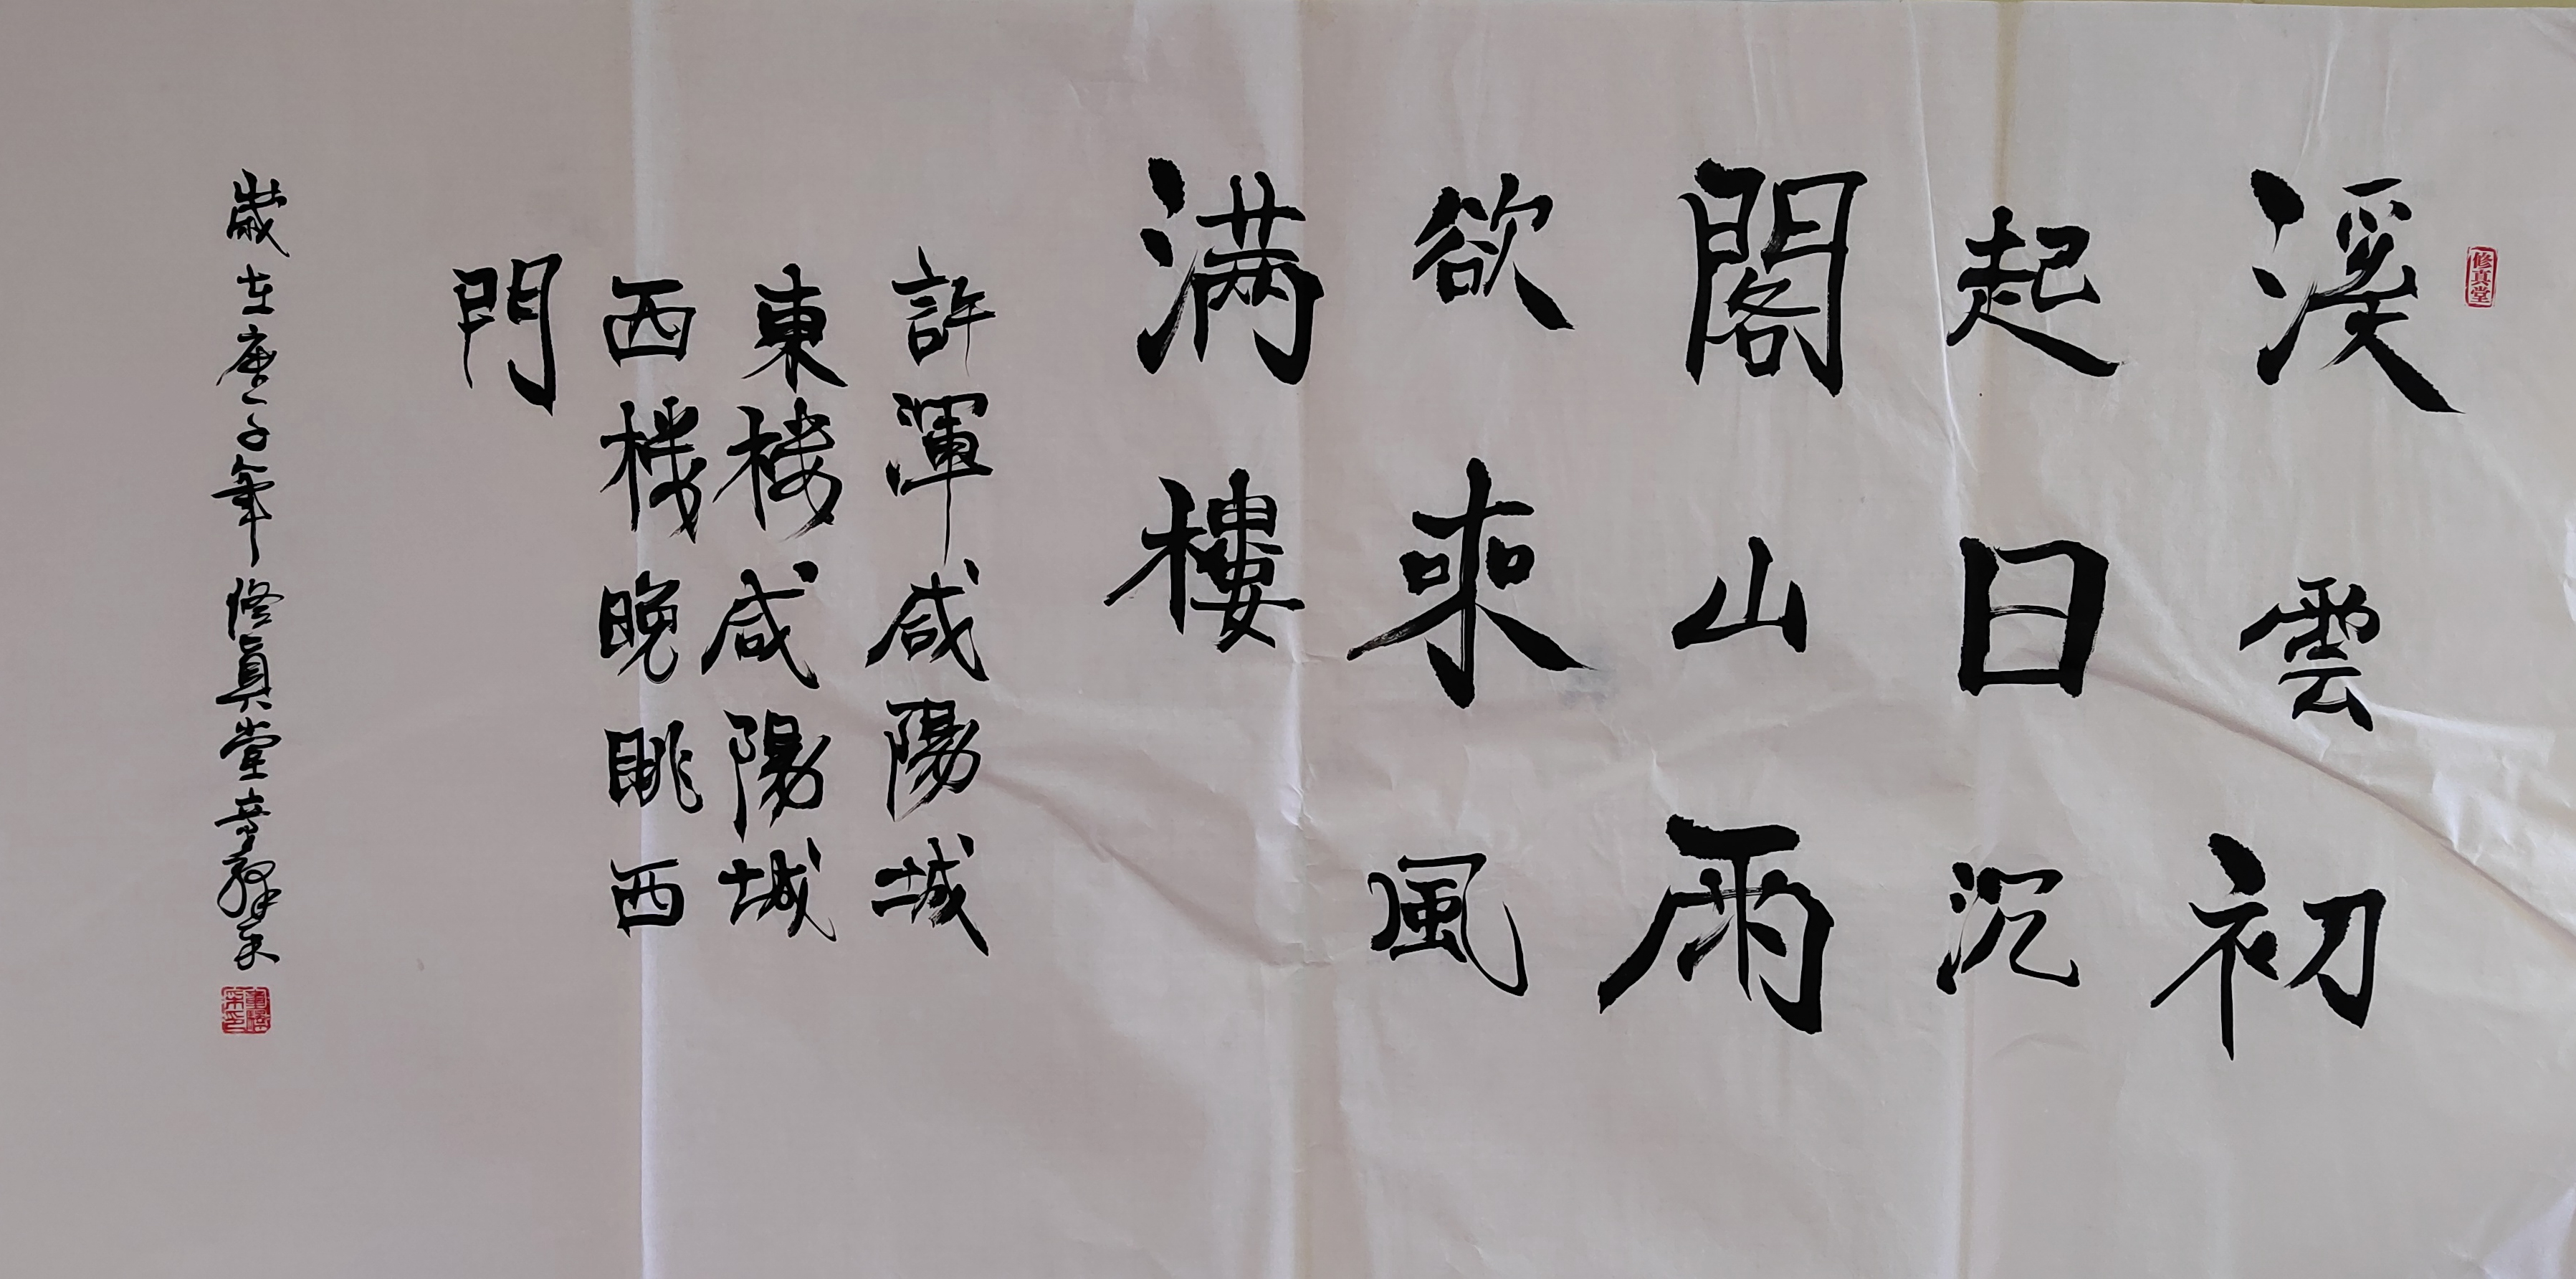 修真堂
溪雲初
起日沉
閣山雨
欲來風
满樓
許渾咸陽城
東楼咸陽城
西楼晚眺西
門
歲在庚子年修真堂